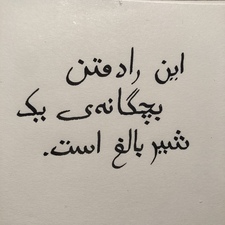 این راه‌فتن
بچگانه‌ی یک
شیر بالغ است.